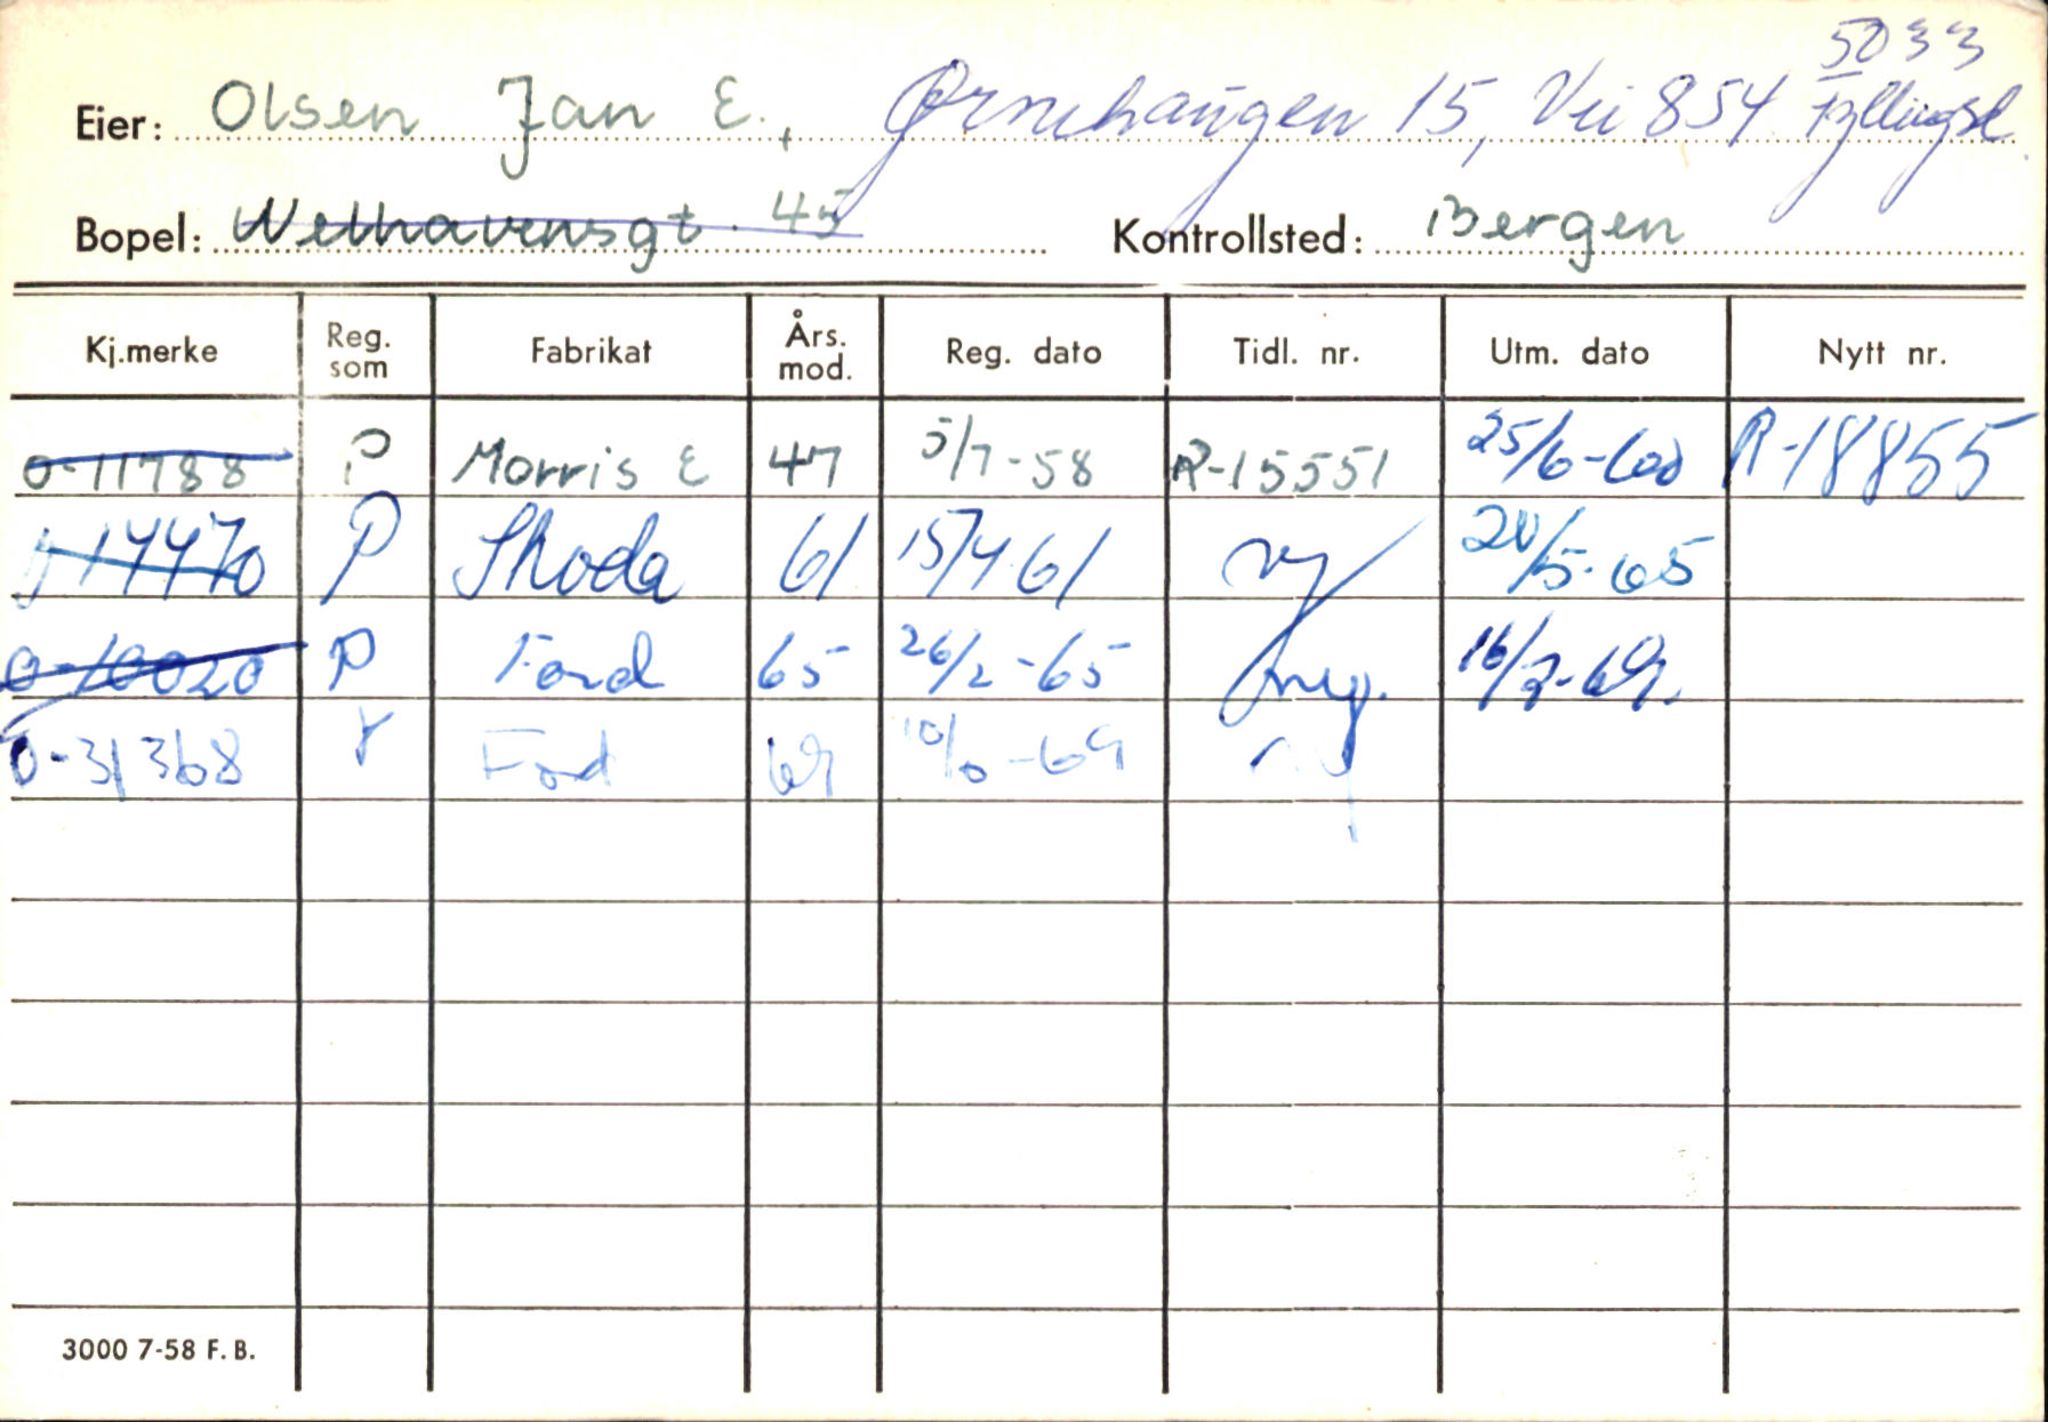 5033
Eier: Olsen Jan E., Ørnehaugen 15, Vei 854 Fyllingsd.
Bopel: Welhavensgt. 45 Kontrollsted: Bergen
Kj.merke Reg. som Fabrikat Års. mod. Reg. dato Tidl. nr. Utm. dato Nytt nr.
O-11788 P Morris E 47 5/7-58 R-15551 25/6-60 R-18855
O-14470 P Skoda 61 15/4 61 ny 20/5-65
O-10020 P Ford 65 26/2-65 16/7-69.
O-31368 P Ford 69 10/6-69 ny
3000 7-58 F. B.